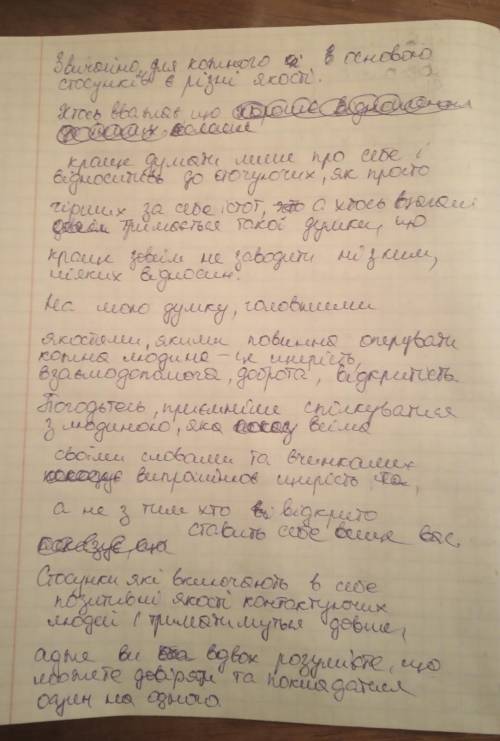 Звичайно, для кожного в основою
стосунків є різні якості.
Хтось вважає що
краще думати лише про себе і
відноситись до оточуючих, як просто
гірших за себе істот, а хтось взагалі
тримається такої думки, що
краще зовсім не заводити ні з ким,
ніяких відносин.
На мою думку, головними
якостями, якими повинна оперувати
кожна людина – це щирість,
взаємодопомога, доброта, відкритість
Погодьтесь, приємніше спілкуватися
з людиною, яка всіма
своїми словами та вчинками
випромінює щирість,
а не з тим хто відкрито
ставить себе вище вас.
Стосунки які включають в себе
позитивні якості контактуючих
людей триматимуться довше,
адже ви вдвох розумієте, що
можете довіряти та покладатися
один на одного